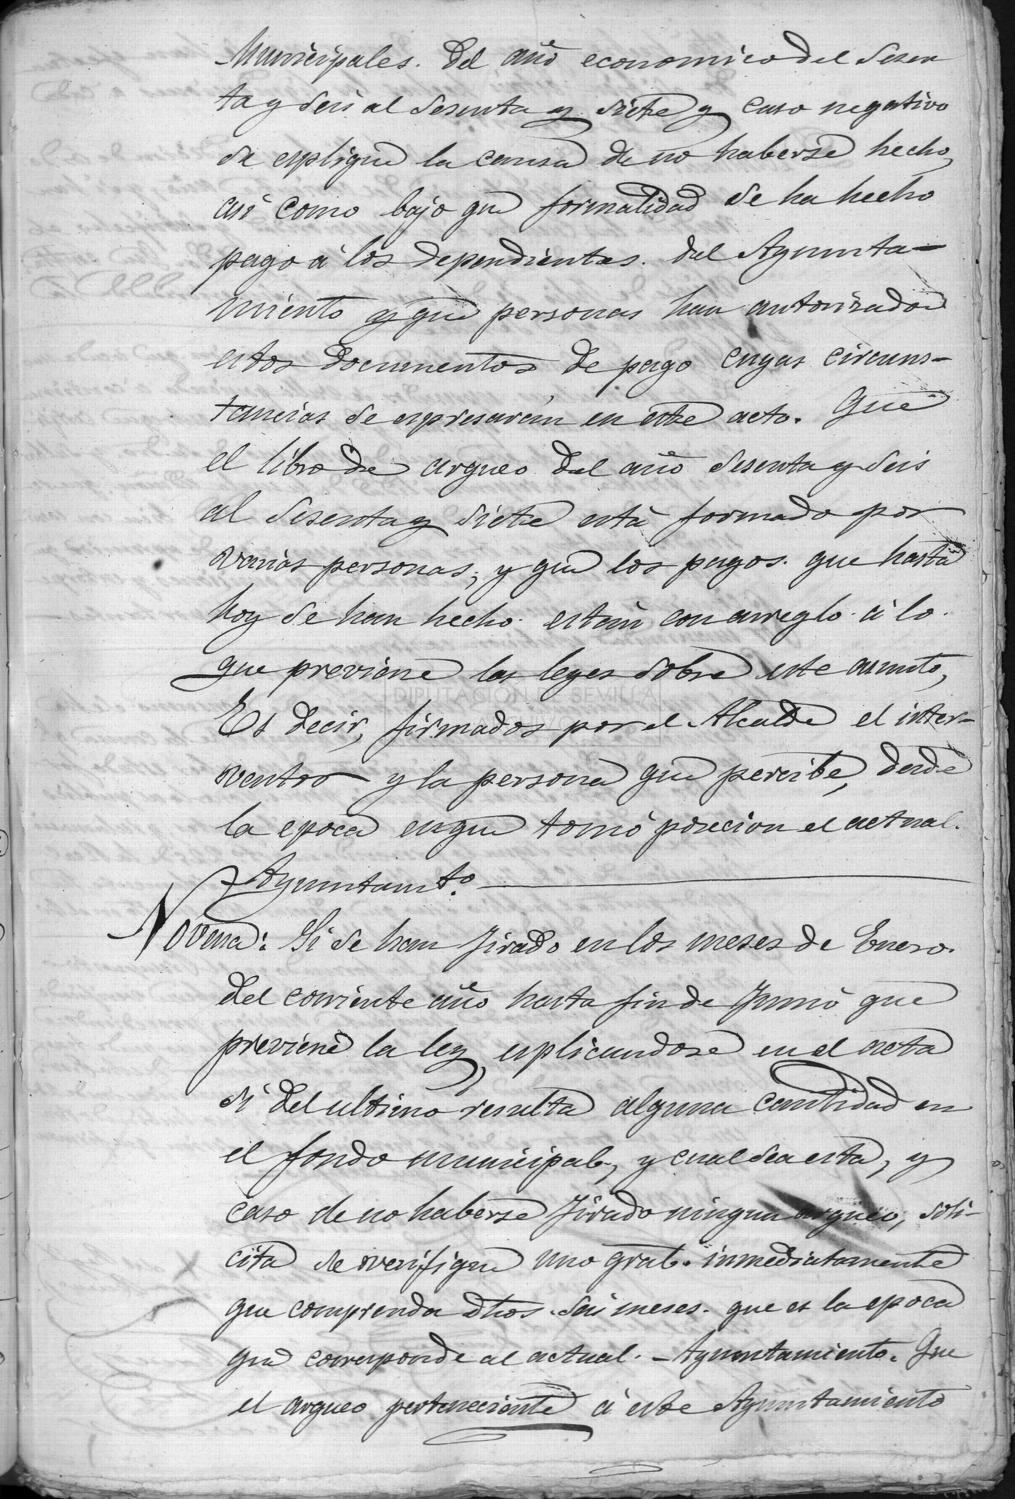 Municipales. del año economico del Sesen
ta y Seis al Sesenta y siete y caso negativo
se esplique la causa de no haberse hecho,
asi como bajo que formalidad se ha hecho
pago á los dependientes. del Ayunta-
miento y que personas han autorizado
estos documentos de pago cuyas circuns-
tancias se espresarán en este acto. Que
el libro de arqueo del año Sesenta y Seis
al Sesenta y Siete está formado por
varias personas, y que los pagos. que hasta
hoy se han hecho. están con arreglo á lo
que previene las leyes sobre este asunto,
Es decir, firmados por el Alcalde el inter-
ventor y la persona que percibe, desde
la epoca en que tomó posecion el actual.
Ayuntamto.
Novena: Si se han jirado en los meses de Enero.
del corriente año hasta fin de Junio que
previene la ley, esplicandose en el acta
si del ultimo resulta alguna cantidad en
el fondo municipal, y cual sea esta, y
caso de no haberse jirado ningun arqueo, soli-
cita se verifique uno gral. inmediatamente
que comprenda dhos. seis meses. que es la epoca
que corresponde al actual. - Ayuntamiento. Que
el arqueo perteneciente á este Ayuntamiento
DIPUTACIÓN DE SEVILLA